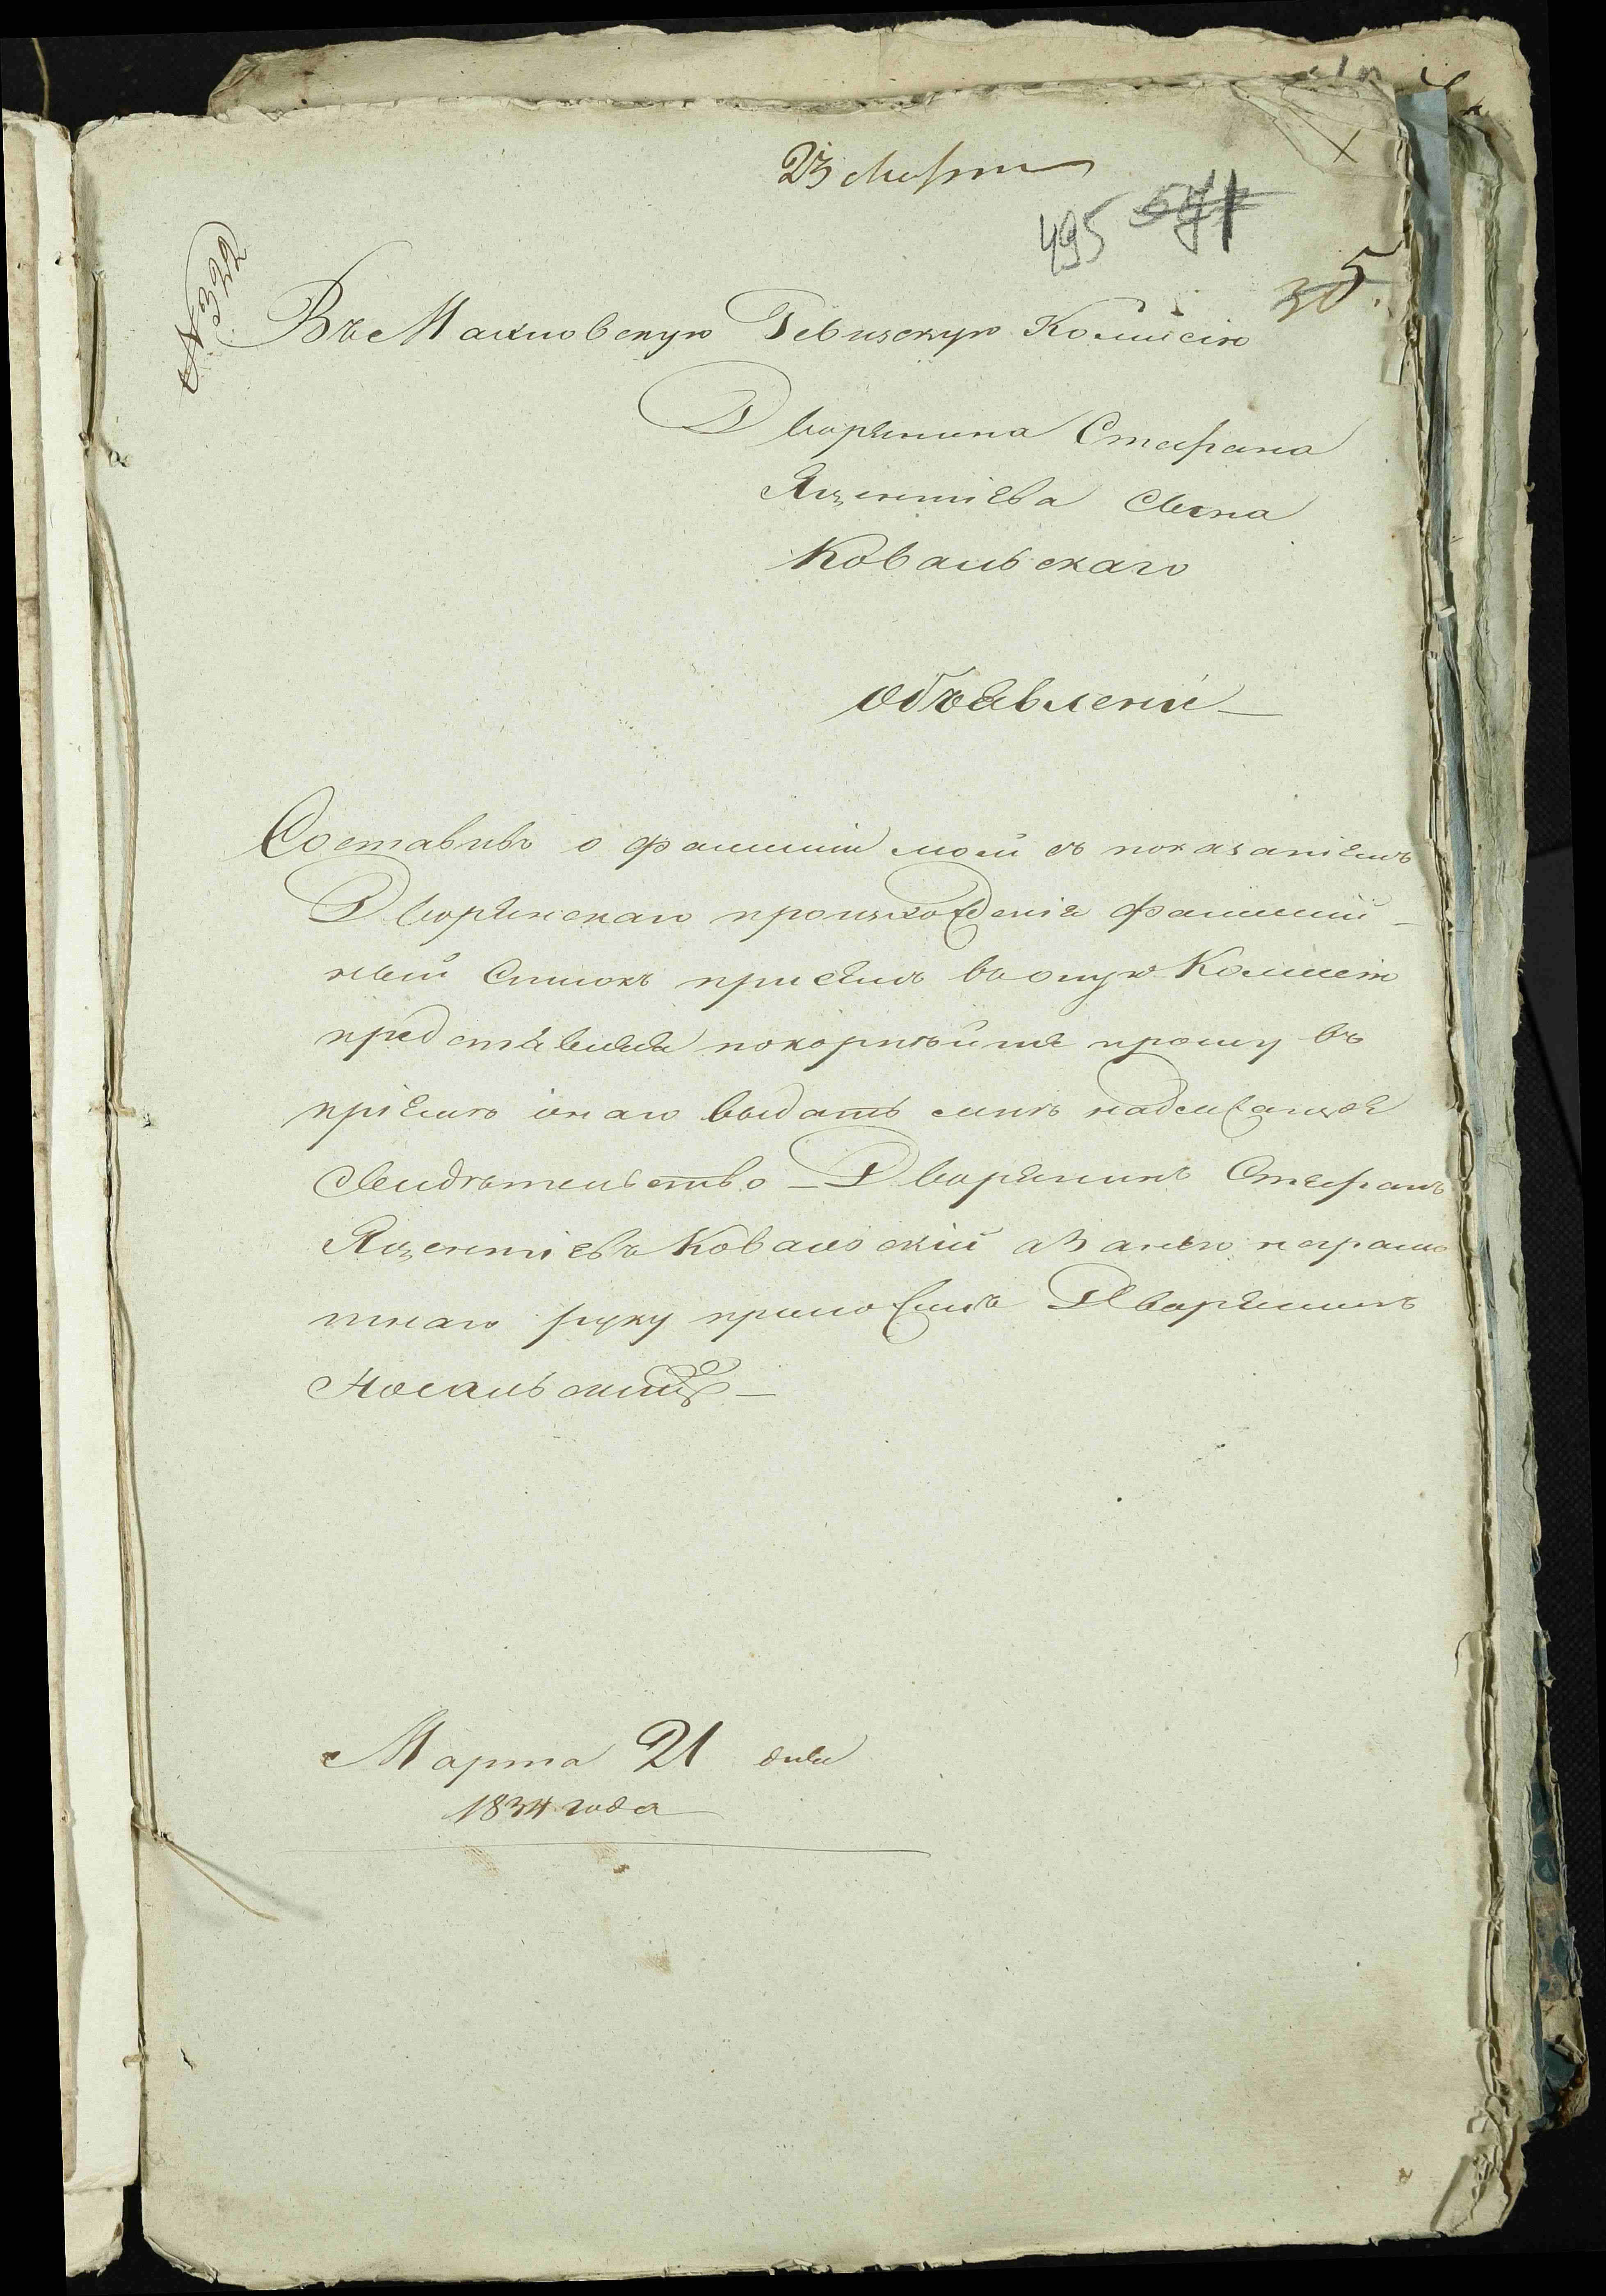 23 Марта
495
5
30.
Въ Махновскую Ревизскую Комисію
Дворянина Стефана
Яцентіева Сына
Ковальскаго
объявленіе
Составивъ о фамиліи моей съ показаніемъ
Дворянскаго произхожденія фамилій-
ный Списокъ присемъ въ оную Комисію
представляя покорнѣйше прошу въ
пріемѣ онаго выдать мнѣ надлежащее
Свидѣтельство – Дворянинъ Стефанъ
Яцентіевъ Ковальскій а Занего неграмо
тнаго руку приложилъ Дворянинъ
Мосальский –
Марта 21 дня
1834 года